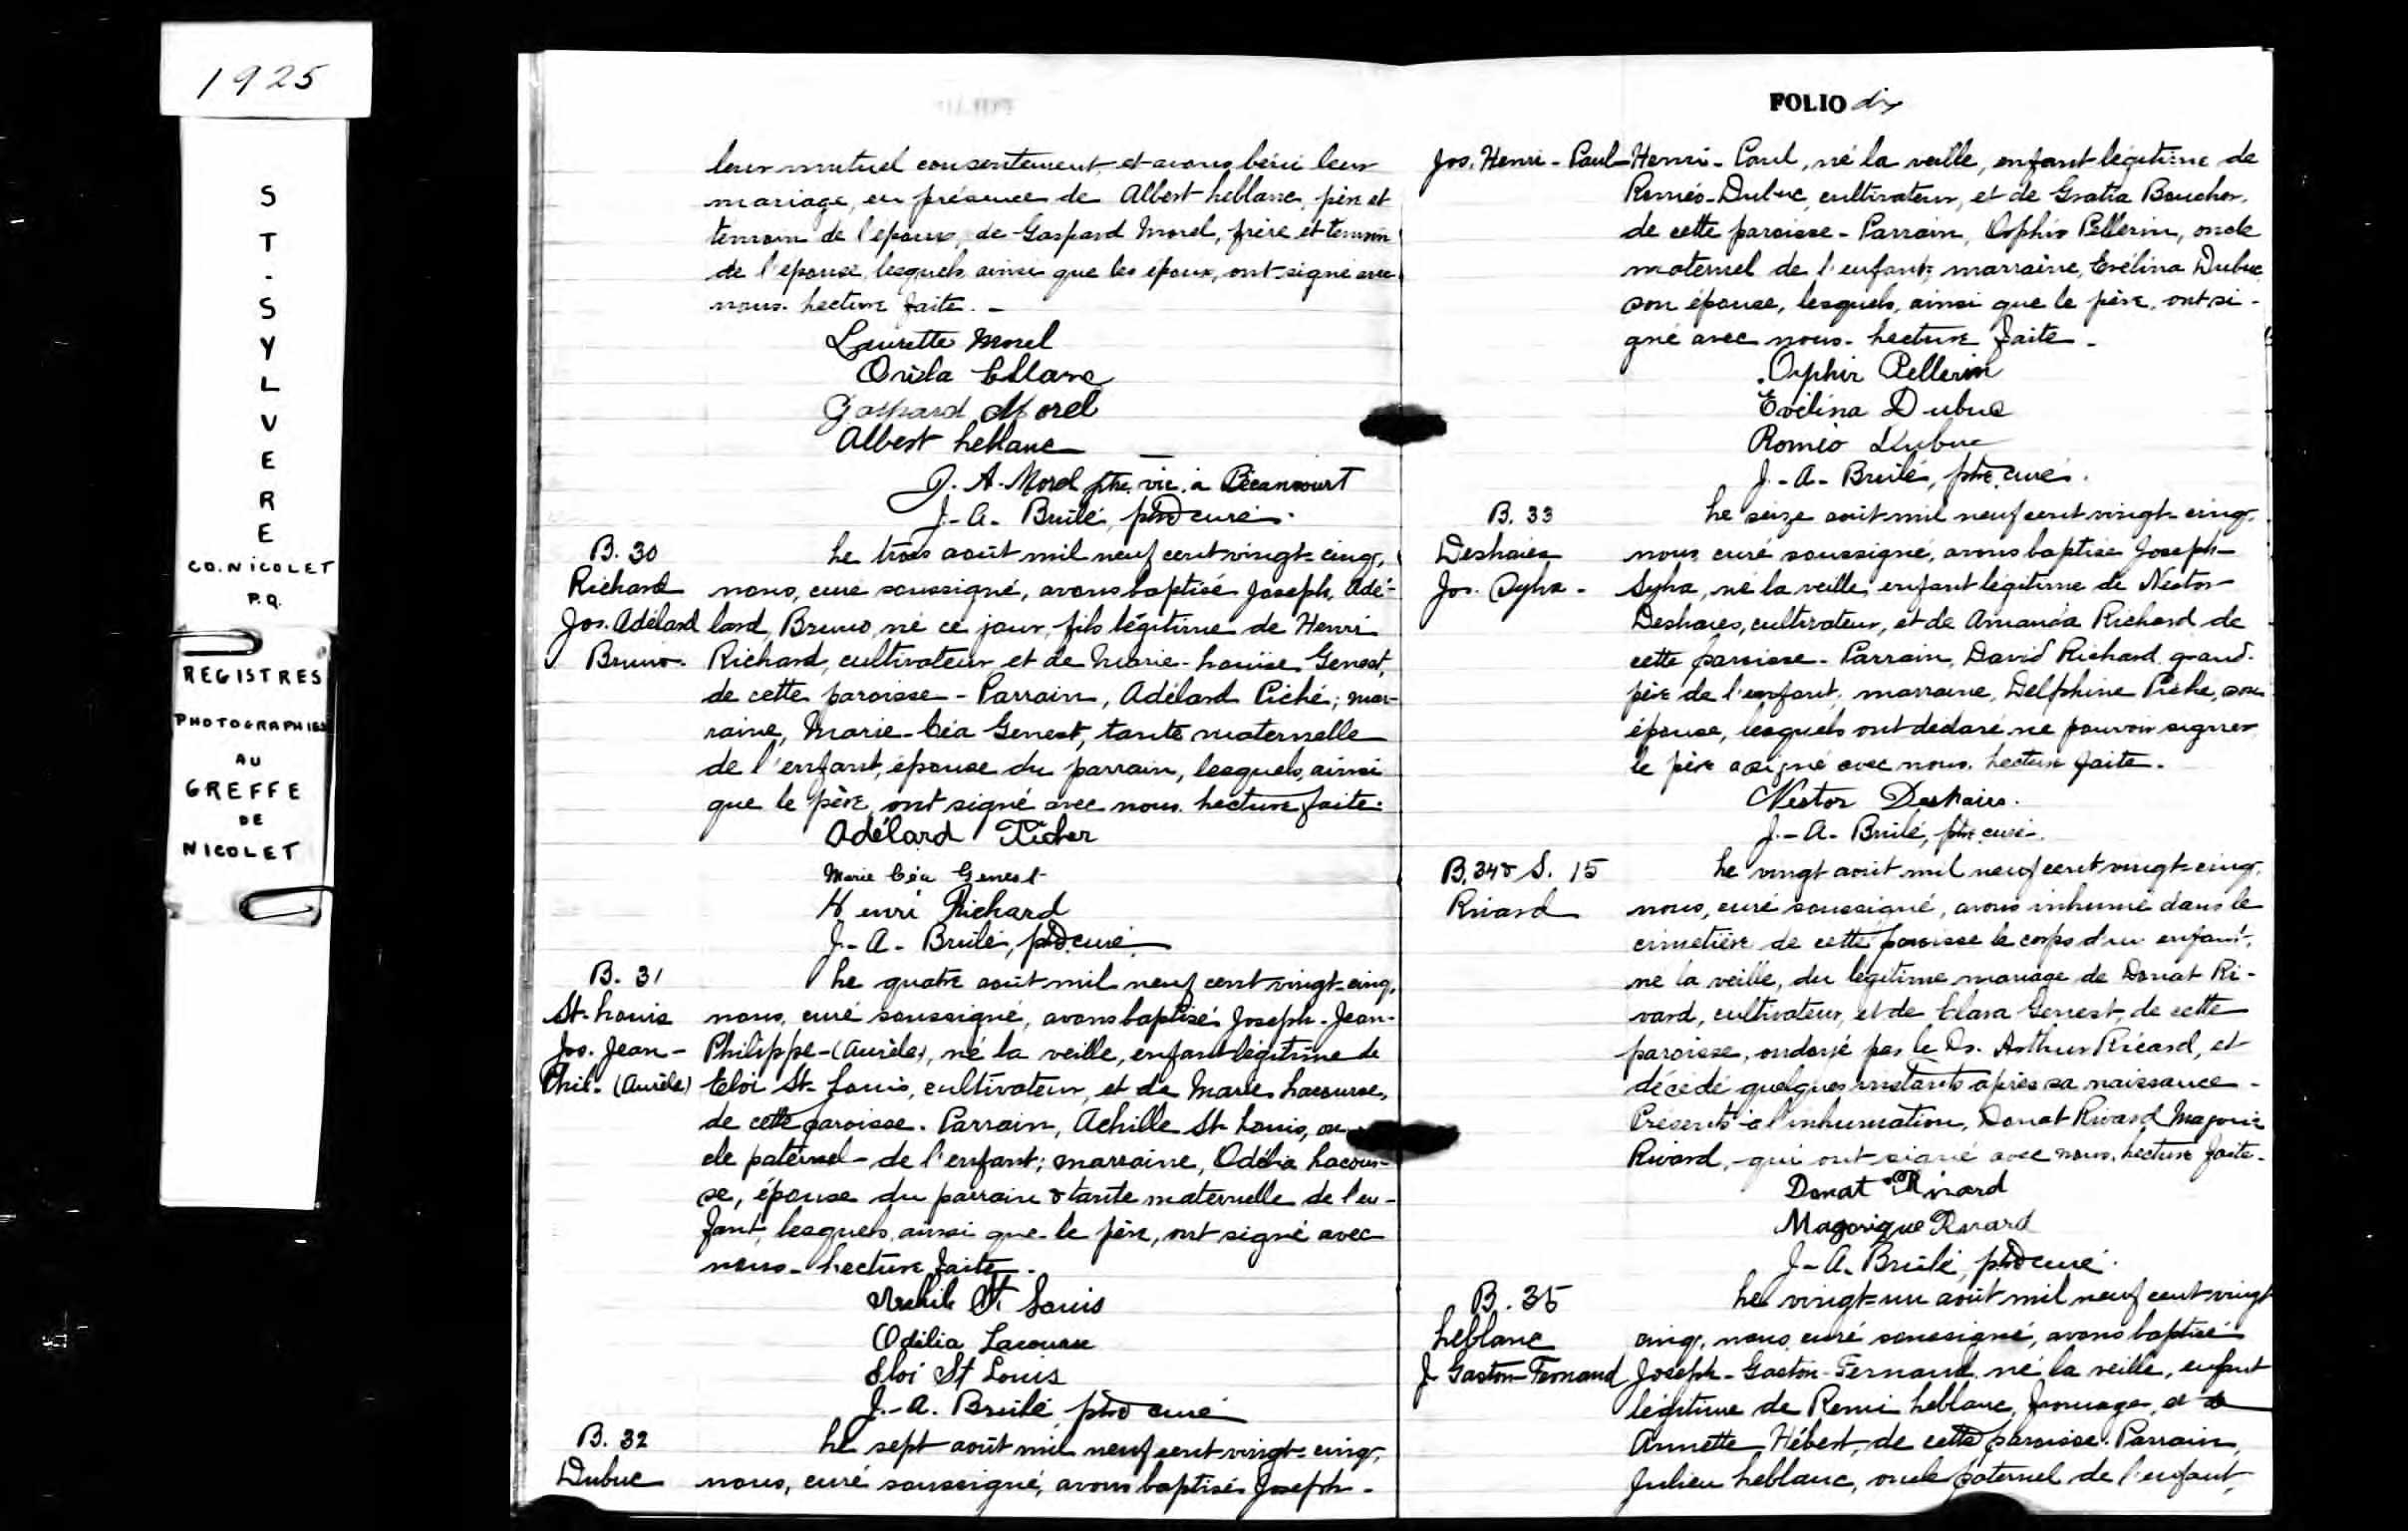 1925
S
T
-
S
Y
L
V
E
R
E
CO. NICOLET
P.Q.
REGISTRES
PHOTOGRAPHIES
AU
GREFFE
DE
NICOLET
leur mutuel consentement, et avons béni leur
mariage, en présence de Albert Leblanc, père et
temoin de l'époux, de Gaspard Morel, frère et temoin
de l'épouse, lesquels, ainsi que les époux, ont signé avec
nous. Lecture faite. -
Laurette Morel
Leblanc
Gaspard Morel
Albert Leblanc
J. A. Morel ptre. vic. à Bécancourt
J.-A. Brulé, ptre curé.
B. 30
Richard
Jos. Adélard
Bruno.
Le trois août mil neuf cent vingt-cinq,
nous, curé soussigné, avons baptisé Joseph, Adé-
lard, Bruno, né ce jour, fils légitime de Henri
Richard, cultivateur, et de Marie-Louise Genest,
de cette paroisse - Parrain, Adélard Piché; mar-
raine, Marie-Céa Genest, tante maternelle
de l'enfant, épouse du parrain, lesquels, ainsi
que le père, ont signé avec nous. Lecture faite.
Adélard Picher
Marie Céa Genest
Henri Richard
J.-A. Brulé, ptre curé.
B. 31
St-Louis
Jos. Jean-
Phil- (Aurèle)
Le quatre août mil neuf cent vingt-cinq,
nous, curé soussigné, avons baptisé Joseph-Jean-
Philippe-(Aurèle), né la veille, enfant légitime de
Eloi St-Louis, cultivateur, et de Marie Lacourse,
de cette paroisse. Parrain, Achille St-Louis, on-
cle paternel de l'enfant; marraine, Odélia Lacour-
se, épouse du parrain & tante maternelle de l'en-
fant, lesquels, ainsi que le père, ont signé avec
nous - Lecture faite.
St Louis
Odélia Lacourse
Eloi St Louis
J.-A. Brulé, ptre curé
B. 32
Dubuc
Le sept août mil neuf cent vingt-cinq,
nous, curé soussigné, avons baptisé Joseph-
FOLIO dix
Jos. Henri-Paul
Henri-Paul, né la veille, enfant légitime de
Roméo Dubuc, cultivateur, et de Gratia Boucher,
de cette paroisse - Parrain, Orphir Pellerin, oncle
maternel de l'enfant; marraine, Evélina Dubuc
son épouse, lesquels, ainsi que le père, ont si-
gné avec nous. Lecture faite.
Orphir Pellerin
Evélina Dubuc
Roméo Dubuc
J.-A. Brulé, ptre curé.
B. 33
Deshaies
Jos.
Le seize août mil neuf cent vingt-cinq,
nous, curé soussigné, avons baptisé Joseph-
né la veille, enfant légitime de Nestor
Deshaies, cultivateur, et de Amanda Richard de
cette paroisse. Parrain, David Richard, grand-
père de l'enfant; marraine, Delphine Piché, son
épouse, lesquels ont déclaré ne pouvoir signer
le père a signé avec nous. Lecture faite.
Nestor Deshaies.
J.-A. Brulé, ptre curé.
B. 34 & S. 15
Rivard
Le vingt août mil neuf cent vingt-cinq,
nous, curé soussigné, avons inhumé dans le
cimetière de cette paroisse le corps d'un enfant,
né la veille, du légitime mariage de Donat Ri-
vard, cultivateur, et de Clara Genest, de cette
paroisse, ondoyé par le Dr. Arthur Ricard, et
décédé quelques instants après sa naissance -
Présents à l'inhumation, Donat Rivard
Rivard, qui ont signé avec nous. Lecture faite.
Donat Rivard
Rivard
J.-A. Brulé, ptre curé.
B. 35
Leblanc
J. Gaston-Fernand
Le vingt-un août mil neuf cent vingt
cinq, nous, curé soussigné, avons baptisé
Joseph-Gaston-Fernand, né la veille, enfant
légitime de Remi Leblanc, fromager, et de
Annette Hébert, de cette paroisse. Parrain,
Julien Leblanc, oncle paternel de l'enfant,